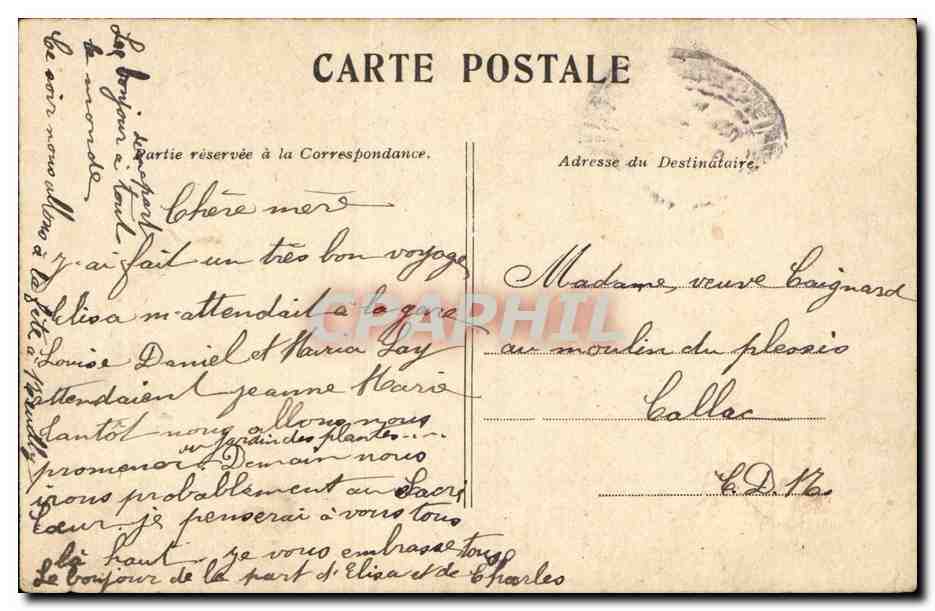 CARTE POSTALE
Partie réservée à la Correspondance.
Adresse du Destinataire.
Chère mère
J'ai fait un très bon voyage
Elisa m'attendait à la gare
Louise Daniel et Maria Lay
attendaient Jeanne Marie
tantôt nous allons nous
promener au Jardin des plantes....
Demain nous
irons probablement au Sacré
Cœur. je penserai à vous tous
là haut je vous embrasse tous
Le bonjour de la part d'Elisa et de Charles
Le bonjour de ma part
à tout
le monde
Ce soir nous allons à la fête à Neuilly
Madame veuve Caignard
au moulin du plessis
Callac
C. D. N.
CPAPHIL